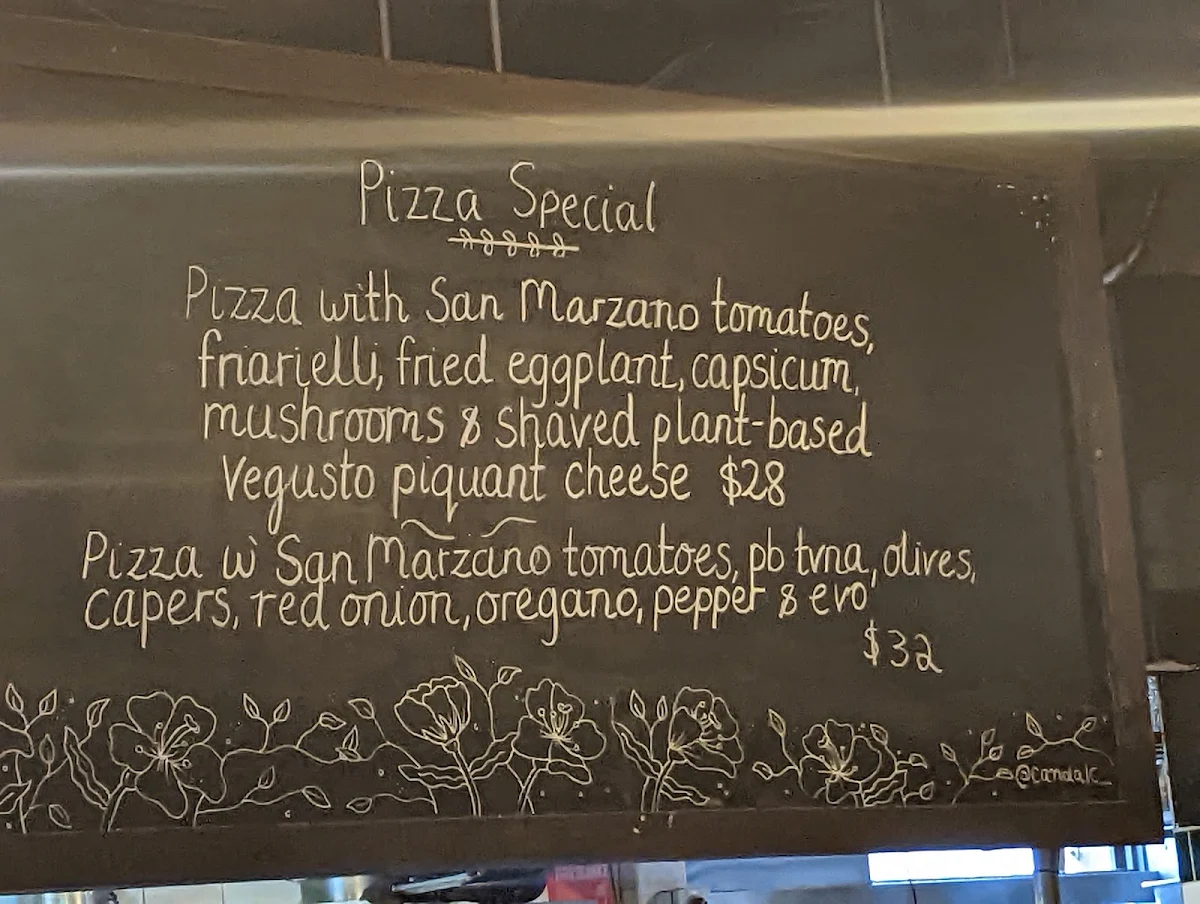 Pizza Special
Pizza with San Marzano tomatoes,
friarielli, fried eggplant, capsicum,
mushrooms & shaved plant-based
Vegusto piquant cheese $28
Pizza w San Marzano tomatoes, pb tvna, olives,
capers, red onion, oregano, pepper & evo
$32